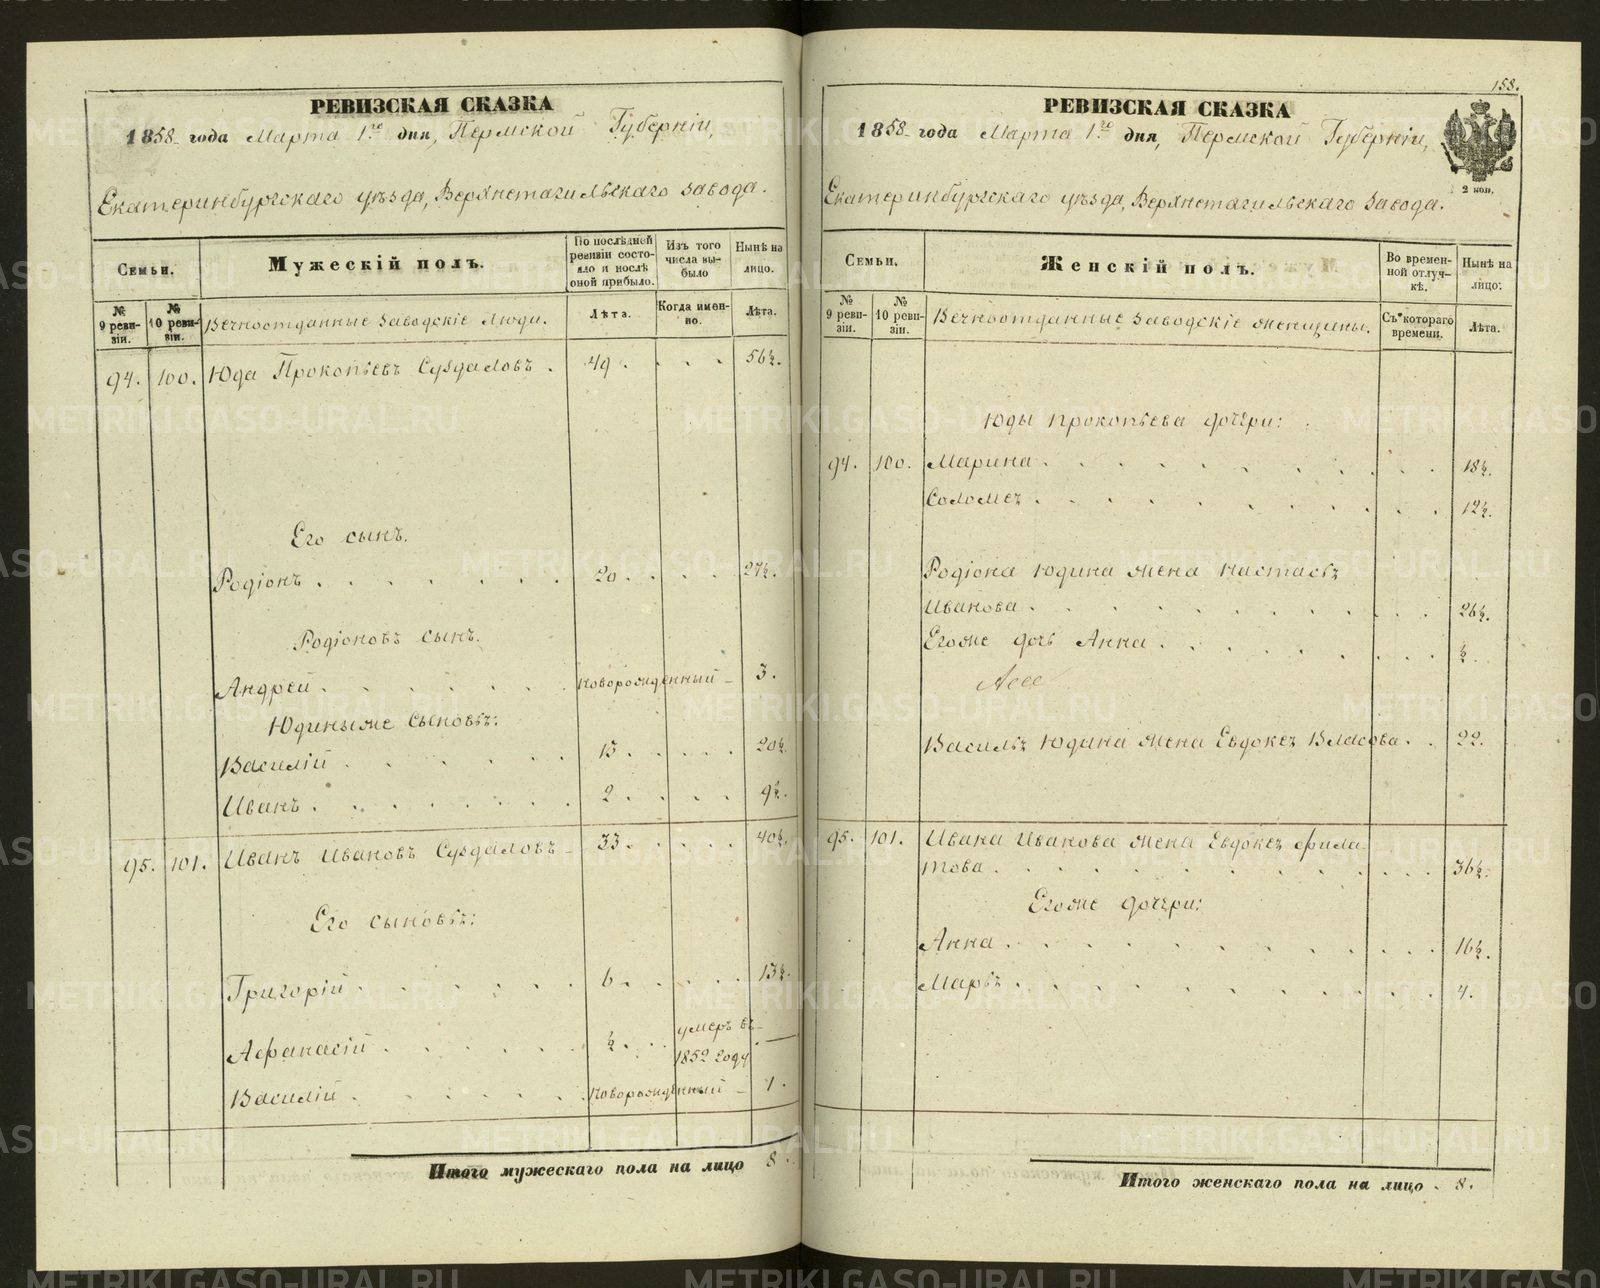 РЕВИЗСКАЯ СКАЗКА
1858 года Марта 1го дня, Пермской Губерніи,
Екатеринбургскаго уѣзда, Верхнетагильскаго завода.
Семьи.
Мужескій полъ.
По послѣдней ревизіи состояло и послѣ оной прибыло.
Изъ того числа выбыло
Нынѣ на лицо.
№ 9 ревизіи.
№ 10 ревизіи.
Вечноотданные Заводскіе Люди.
Лѣта.
Когда именно.
Лѣта.
94. 100. Юда Прокопьевъ Суздаловъ . 49 . . . . 56½.
Его сынъ.
Родіонъ . . . . . . . 20 . . . . 27½.
Родіоновъ сынъ.
Андрей . . . . . . . новорожденный – 3.
Юдиныже сыновья:
Василій . . . . . . 13 . . . . . 20½
Иванъ . . . . . . . 2 . . . . 9½.
95. 101. Иванъ Ивановъ Суздаловъ – 33 . . . . . 40½.
Его сыновья:
Григорій . . . . . . 6 . . . . . 13½.
Афанасій . . . . . ½ . . . умеръ въ 1852 году –
Василій . . . . . . новорожденный – 1.
Итого мужескаго пола на лицо 8.
158.
РЕВИЗСКАЯ СКАЗКА
1858 года Марта 1го дня, Пермской Губерніи,
2 коп.
Екатеринбургскаго уѣзда, Верхнетагильскаго Завода.
Семьи.
Женскій полъ.
Во временной отлучкѣ.
Нынѣ на лицо:
№ 9 ревизіи.
№ 10 ревизіи.
Вечноотданные Заводскіе женщины.
Съ котораго времени.
Лѣта.
Юды Прокопьева дочери:
94. 100. Марина . . . . . . . . . 18½.
Соломея . . . . . . . . . . 12½.
Родіона Юдина жена Настасья
Иванова . . . . . . . . . . 26½.
Егоже дочь Анна . . . . . . . . ½.
Василья Юдина жена Евдокея Власова . . 22.
95. 101. Ивана Иванова жена Евдокея Фила
това . . . . . . . . . . . 36½.
Егоже дочери:
Анна . . . . . . . . . . . 16½.
Марья . . . . . . . . . . . 4.
Итого женскаго пола на лицо . 8.
METRIKI.GASO-URAL.RU